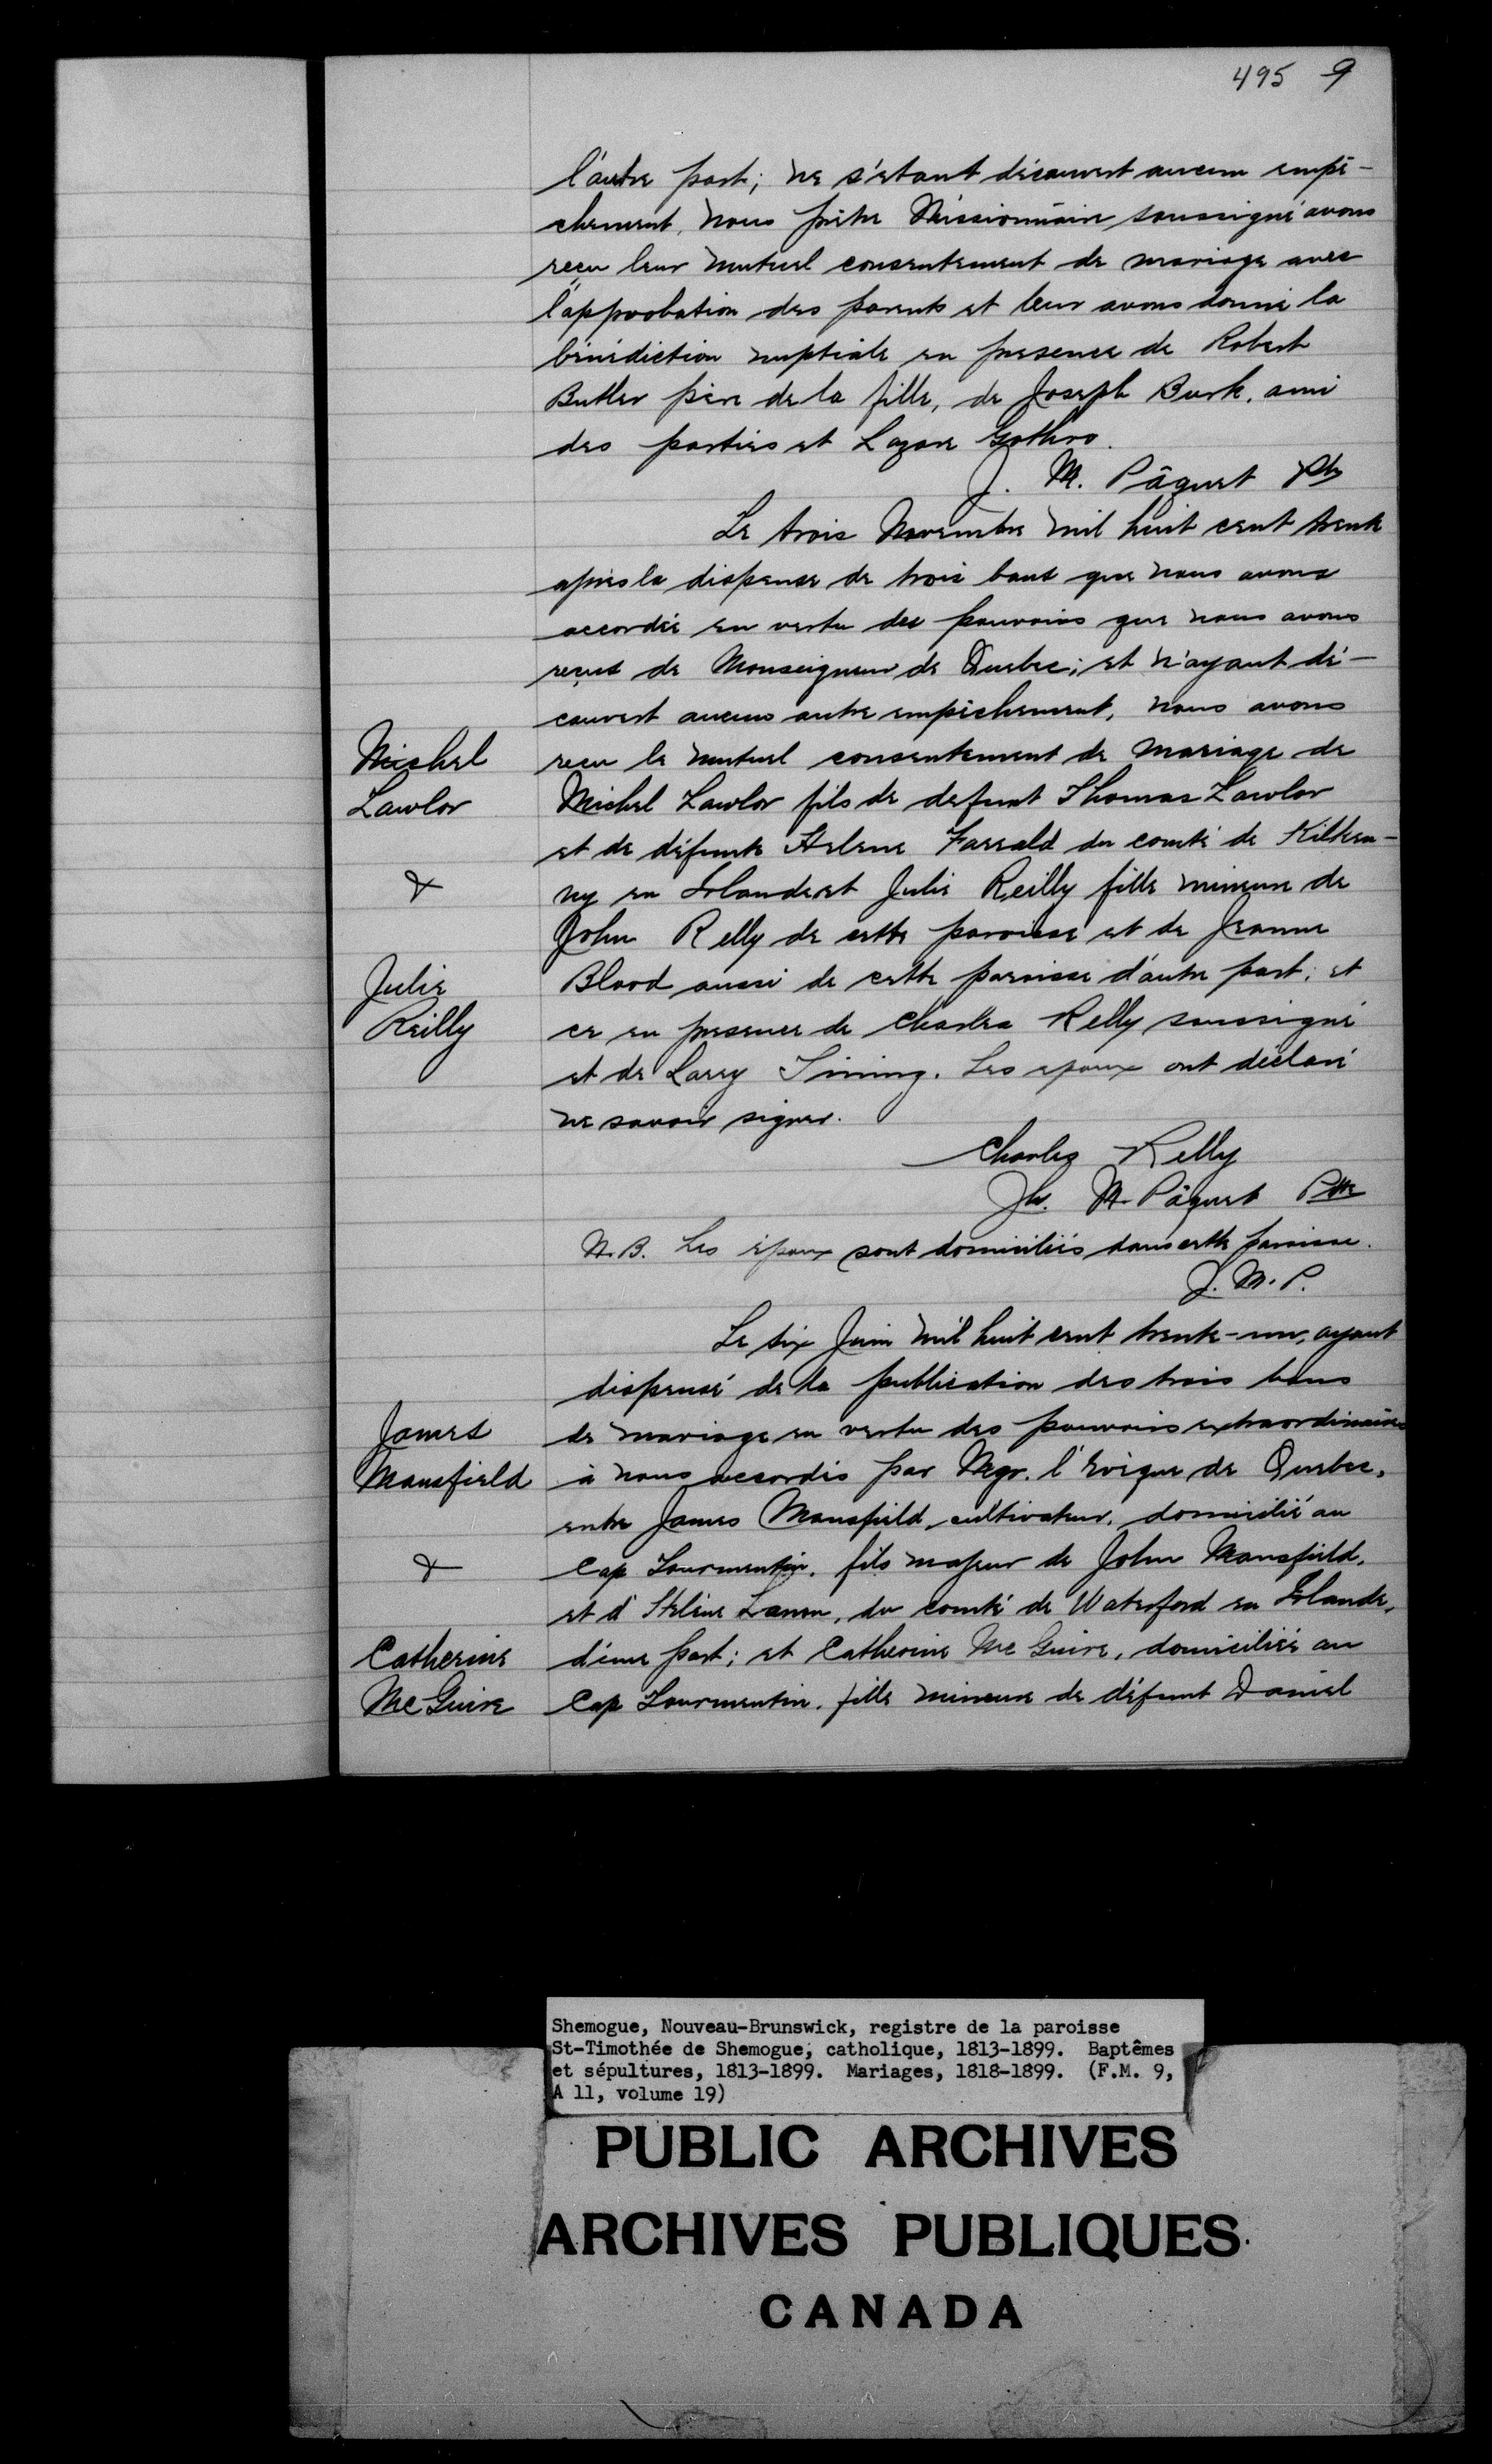 495 9
l'autre part; ne s'étant découvert aucun empê-
chement, nous prêtre Missionnaire soussigné avons
reçu leur mutuel consentement de mariage avec
l'approbation des parents et leur avons donné la
bénédiction nuptiale en presence de Robert
Butler père de la fille, de Joseph Burk, ami
des parties et Lazare Gothro.
J. M. Pâquet Ptr
Le trois Novembre mil huit cent trente
après la dispense de trois bans que nous avons
accordée en vertu des pouvoirs que nous avons
reçus de Monseigneur de Quebec; et n'ayant dé-
couvert aucun autre empêchement, nous avons
Michel reçu le mutuel consentement de mariage de
Lawlor Michel Lawlor fils de defunt Thomas Lawlor
et de défunte Helene Farrald du comté de Kilken-
& ny en Irlande et Julie Reilly fille mineure de
John Relly de cette paroisse et de Jeanne
Julie Blood aussi de cette paroisse d'autre part; et
Reilly ce en presence de Charles Relly soussigné
et de Larry Tining. Les epoux ont déclaré
ne savoir signer.
Charles Relly
Js. M. Pâquet Ptre
N.B. Les époux sont domiciliés dans cette paroisse.
J. M. P.
Le six Juin mil huit cent trente-un, ayant
dispensé de la publication des trois bans
James de mariage en vertu des pouvoirs extraordinaires
Mansfield à nous accordés par Mgr. l'Evêque de Quebec,
entre James Mansfield, cultivateur, domicilié au
& Cap Tourmentin, fils majeur de John Mansfield,
et d'Hélène, du comté de Waterford en Irlande,
Catherine d'une part; et Catherine McGuire, domiciliée au
McGuire Cap Tourmentin, fille mineure de défunt Daniel
Shemogue, Nouveau-Brunswick, registre de la paroisse
St-Timothée de Shemogue, catholique, 1813-1899. Baptêmes
et sépultures, 1813-1899. Mariages, 1818-1899. (F.M. 9,
A 11, volume 19)
PUBLIC ARCHIVES
ARCHIVES PUBLIQUES
CANADA